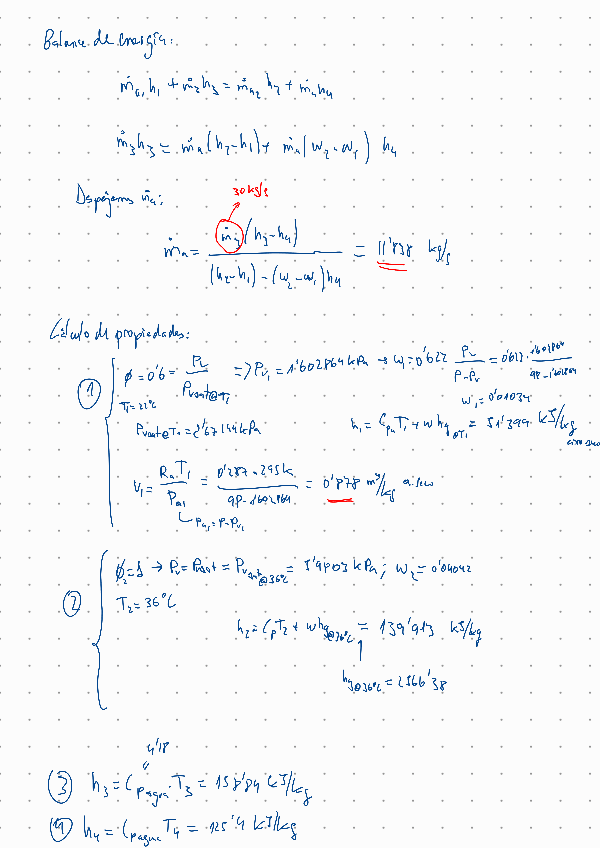 Balance de energía:
ṁa₁ h₁ + ṁ₃h₃ = ṁa₂ h₂ + ṁ₄h₄
ṁ₃h₃ = ṁa (h₂-h₁) + ṁa (w₂-w₁) h₄
Despejamos ṁa:
30 kg/s
ṁa = ṁ₃ (h₃-h₄) / (h₂-h₁) - (w₂-w₁)h₄ = 11'838 kg/s
Cálculo de propiedades:
① ϕ = 0'6 = Pv / Pvsat@T₁ => Pv₁ = 1'602864 kPa → w₁ = 0'622 Pv / P-Pv = 0'622 · 1'602864 / 98-1'602864
T₁ = 22°C
w₁ = 0'01034
Pvsat@T₁ = 2'67144 kPa
h₁ = CpaT₁ + w hg@T₁ = 51'399 kJ/kg aire seco
v₁ = Ra·T₁ / Pa₁ = 0'287 · 295 K / 98-1'602864 = 0'878 m³/kg a. seco
Pa₁ = P-Pv₁
② ϕ₂ = 1 → Pv = Psat = Pvsat@36°C = 5'9803 kPa; w₂ = 0'04042
T₂ = 36°C
h₂ = CpT₂ + w hg@36°C = 139'913 kJ/kg
hg@36°C = 2566'38
4'18
③ h₃ = Cpagua T₃ = 158'84 kJ/kg
④ h₄ = Cpagua T₄ = 125'4 kJ/kg